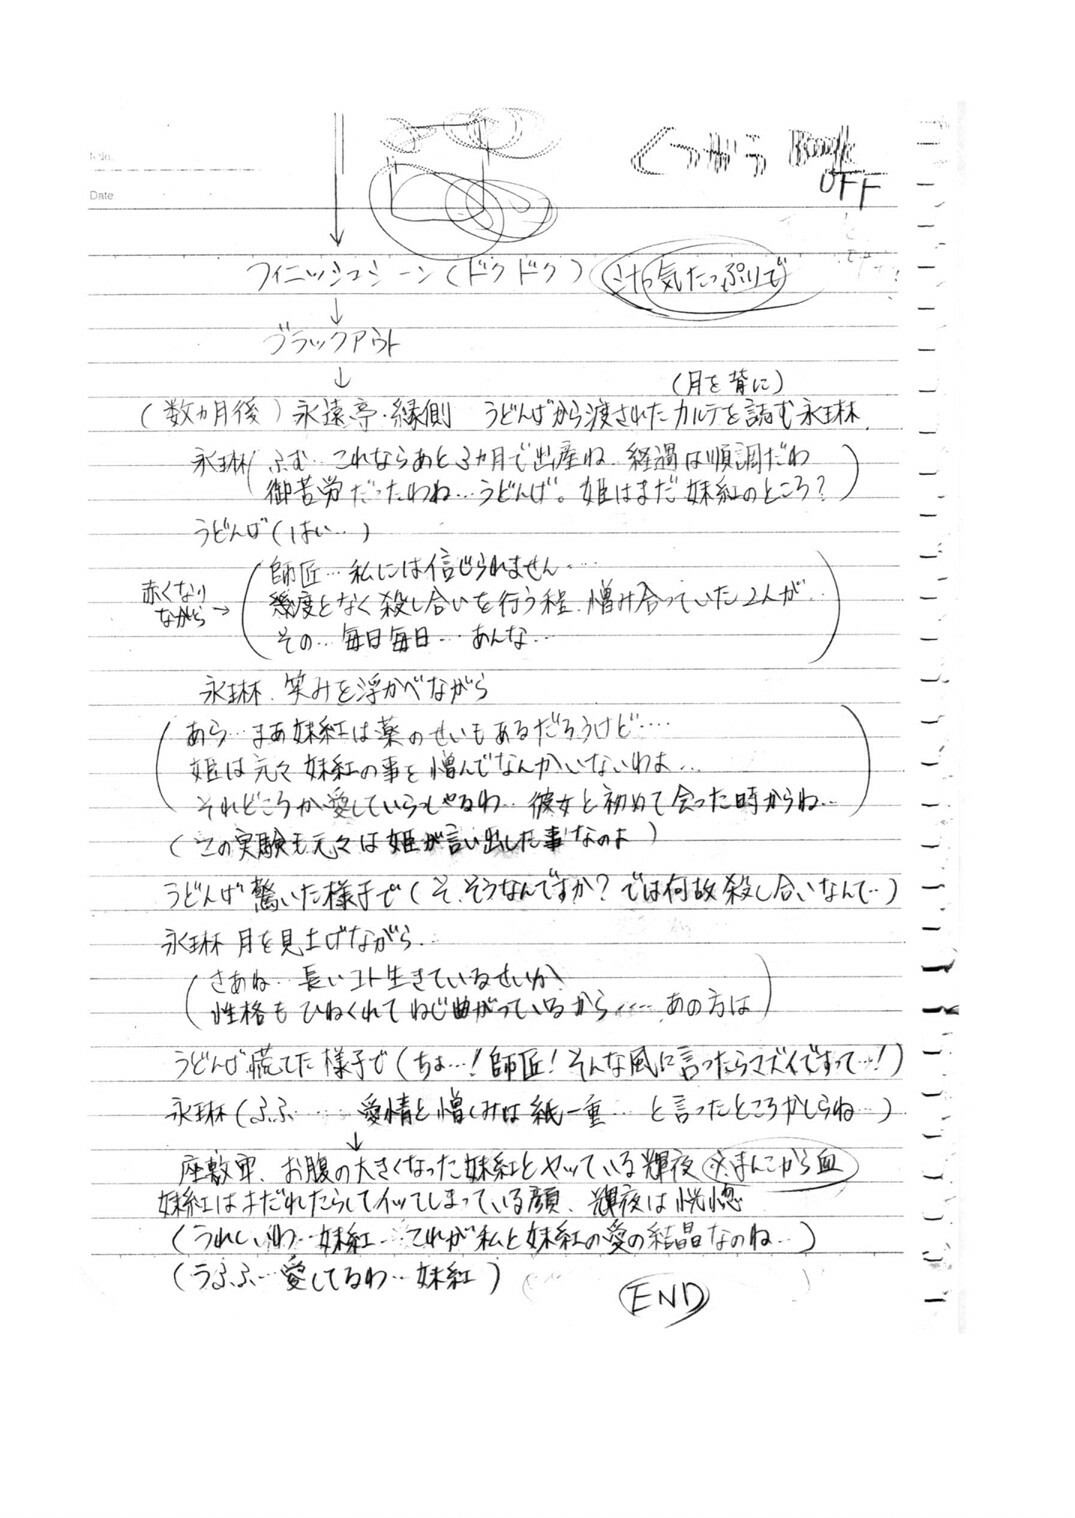 No.
Date
くっがう Book
OFF
フィニッシュシーン(ドクドク) 汁っ気たっぷりで
↓
ブラックアウト
↓
(月を背に)
(数ヵ月後) 永遠亭・縁側 うどんげから渡されたカルテを読む永琳
永琳(ふむ…これならあと3カ月で出産ね 経過は順調だわ
御苦労だったわね…うどんげ。姫はまだ妹紅のところ?)
うどんげ(はい…)
赤くなり
ながら→
(師匠…私には信じられません…
幾度となく殺し合いを行う程、憎み合っていた2人が…
その…毎日毎日…あんな…)
永琳、笑みを浮かべながら
(あら…まあ妹紅は薬のせいもあるだろうけど…
姫は元々妹紅の事を憎んでなんかいないわよ…
それどころか愛していらっしゃるわ…彼女と初めて会った時からね…)
(この実験も元々は姫が言い出した事なのよ)
うどんげ驚いた様子で(そ、そうなんですか?では何故殺し合いなんて…)
永琳 月を見上げながら…
(さあね…長いコト生きているせいか
性格もひねくれてねじ曲がっているから……あの方は)
うどんげ慌てた様子で(ちょ…!師匠!そんな風に言ったらマズイですって…!)
永琳(ふふ… 愛情と憎しみは紙一重…と言ったところかしらね…)
↓
座敷牢、お腹の大きくなった妹紅とヤッている輝夜 ※まんこから血
妹紅はよだれたらしてイッてしまっている顔、輝夜は恍惚
(うれしいわ…妹紅…これが私と妹紅の愛の結晶なのね…)
(うふふ…愛してるわ…妹紅)
END